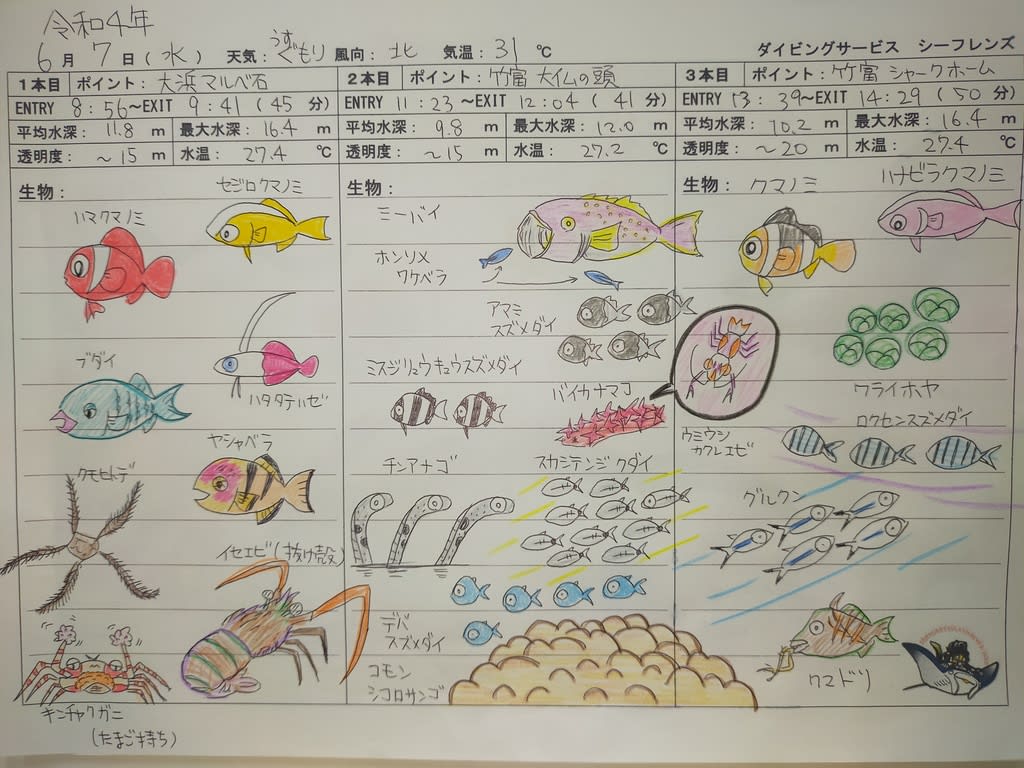 令和4年
6月 7日(水) 天気:うすぐもり 風向:北 気温:31℃ ダイビングサービス シーフレンズ
1本目 ポイント:大浜マルベ石
ENTRY 8:56~EXIT 9:41(45分)
平均水深:11.8 m 最大水深:16.4 m
透明度:~15 m 水温:27.4 ℃
生物:
セジロクマノミ
ハマクマノミ
ブダイ
ハタタテハゼ
ヤシャベラ
クモヒトデ
イセエビ(抜け殻)
キンチャクガニ
(たまご持ち)
2本目 ポイント:竹富 大仏の頭
ENTRY 11:23~EXIT 12:04(41分)
平均水深:9.8 m 最大水深:12.0 m
透明度:~15 m 水温:27.2 ℃
生物:
ミーバイ
ホンソメ
ワケベラ
アマミ
スズメダイ
ミスジリュウキュウスズメダイ
バイカナマコ
チンアナゴ
スカシテンジクダイ
デバ
スズメダイ
コモン
シコロサンゴ
3本目 ポイント:竹富 シャークホーム
ENTRY 13:39~EXIT 14:29(50分)
平均水深:10.2 m 最大水深:16.4 m
透明度:~20 m 水温:27.4 ℃
生物:
クマノミ
ハナビラクマノミ
ワライホヤ
ウミウシ
カクレエビ
ロクセンスズメダイ
グルクン
クマドリ